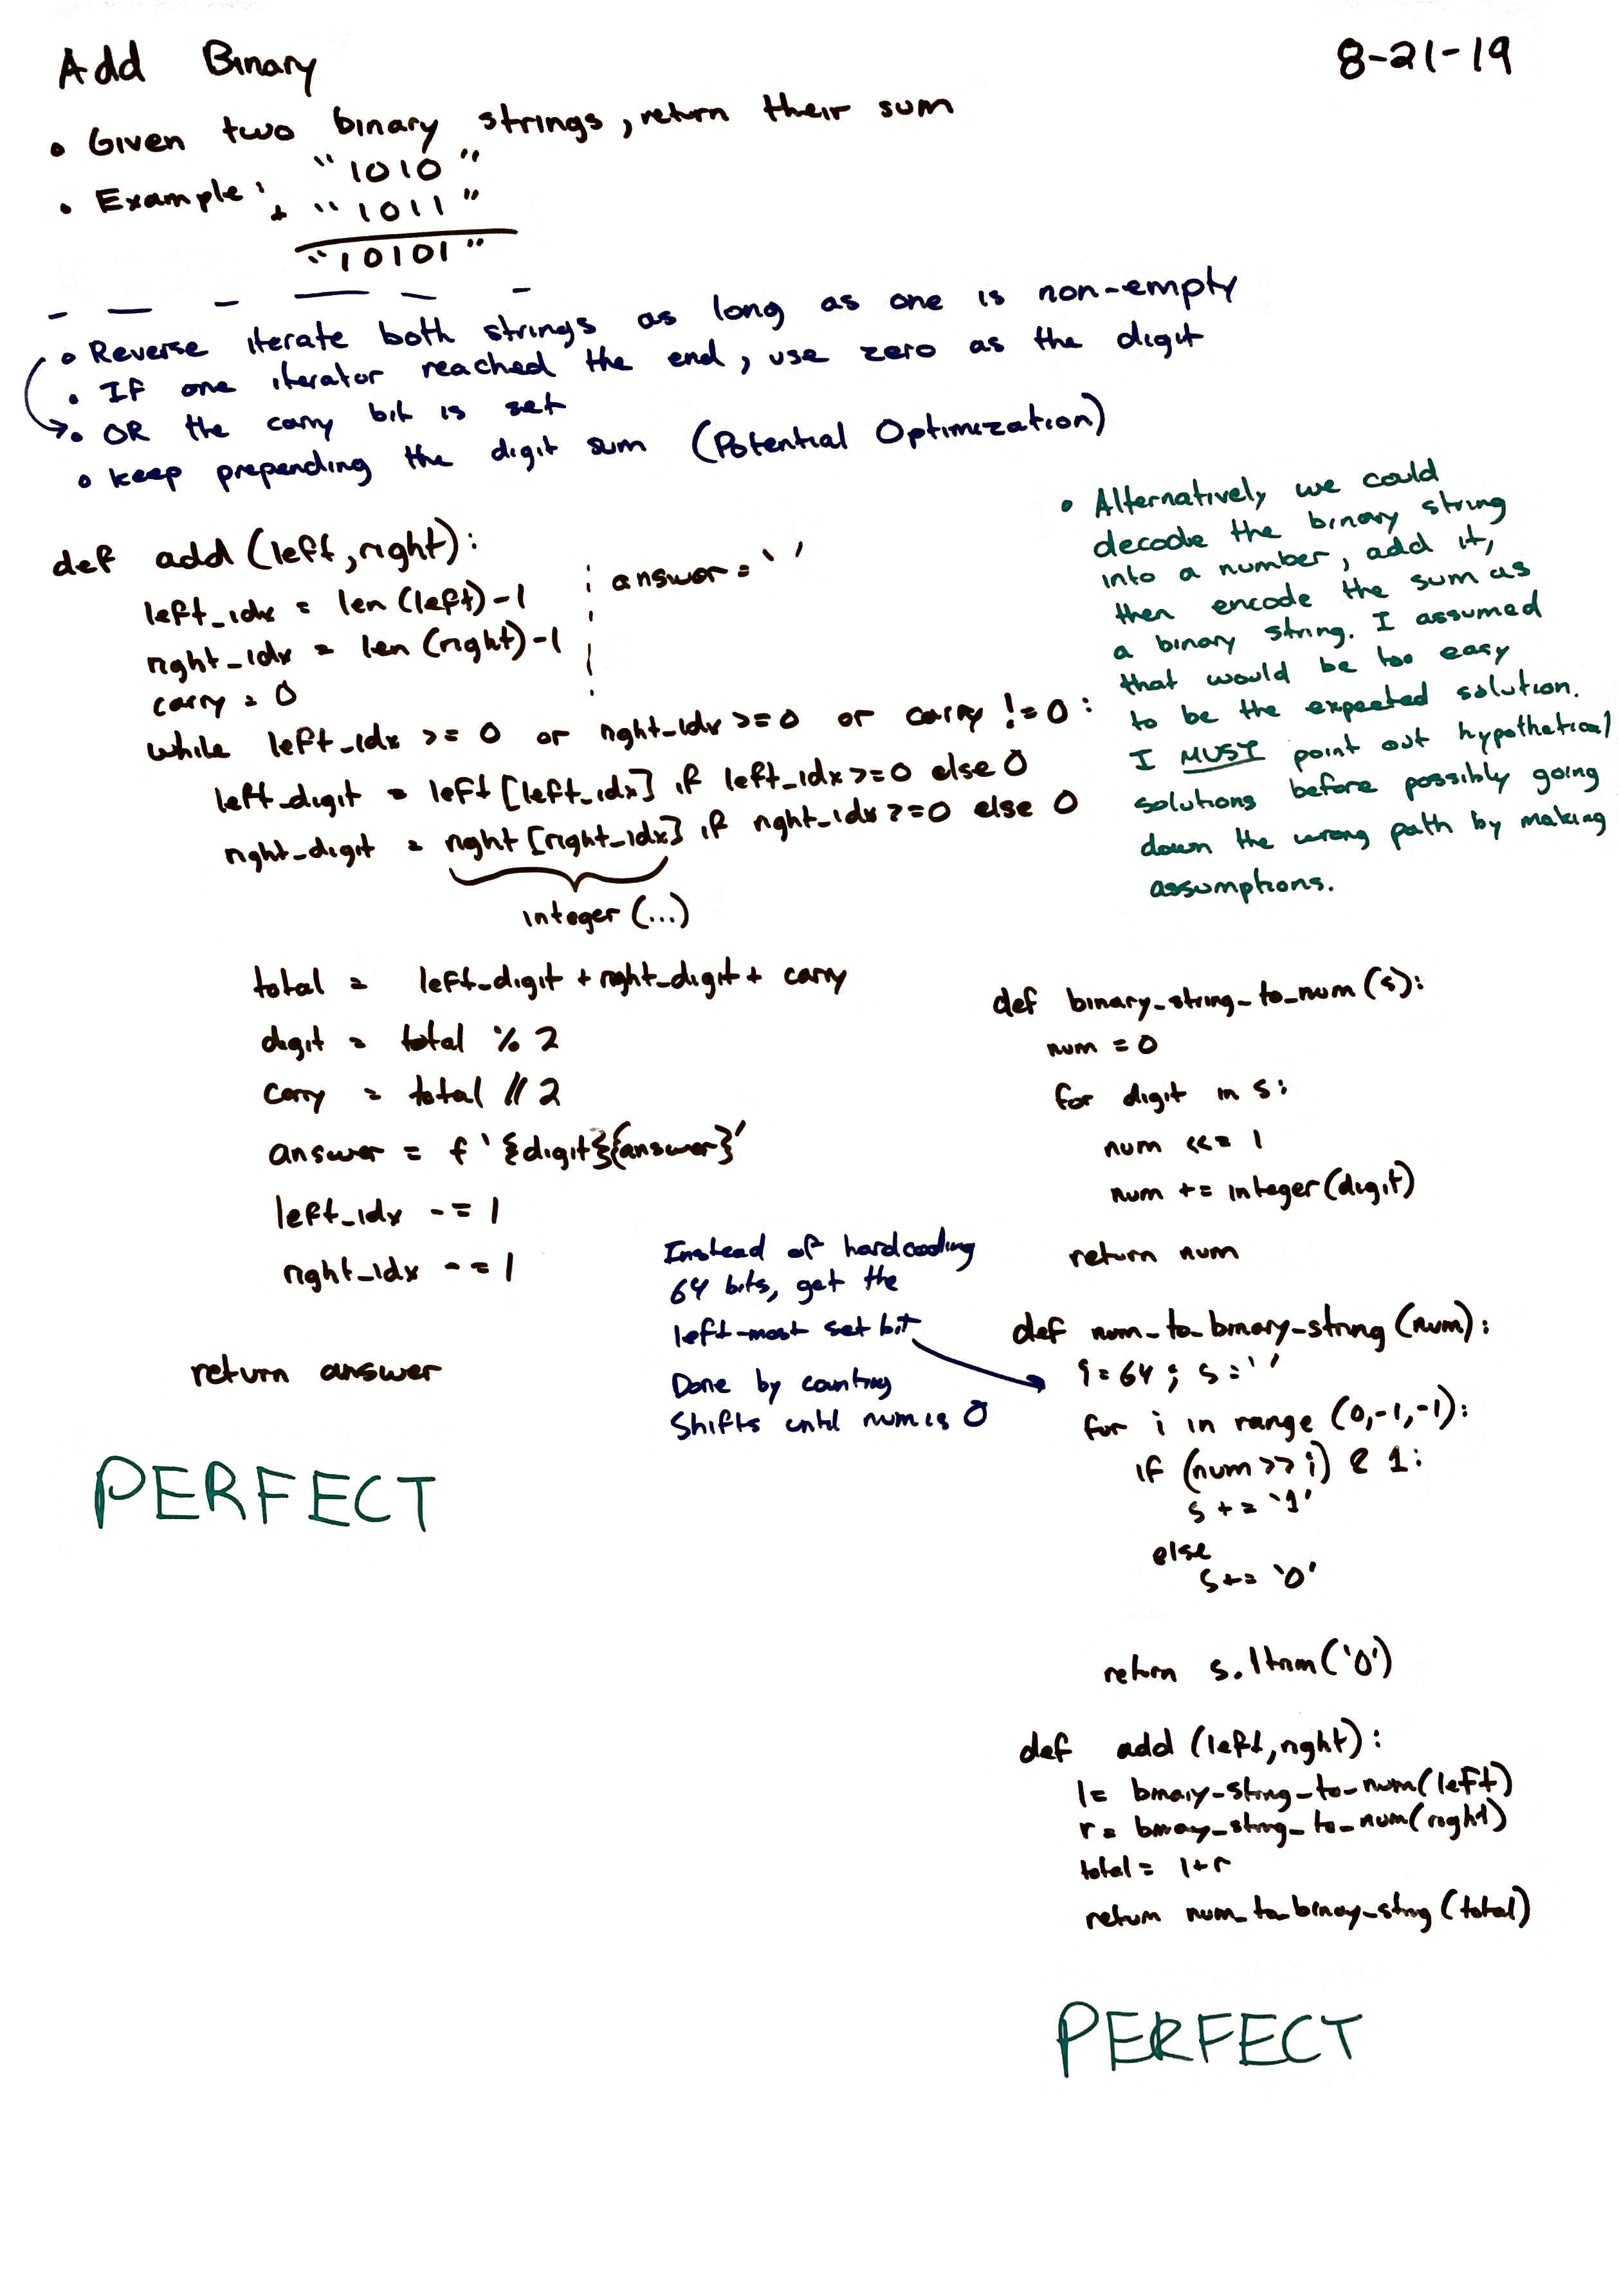 Add Binary
8-21-19
• Given two binary strings, return their sum
• Example: "1010"
+ "1011"
"10101"
• Reverse iterate both strings as long as one is non-empty
• If one iterator reached the end, use zero as the digit
• OR the carry bit is set
• keep prepending the digit sum (Potential Optimization)
def add(left, right):
left_idx = len(left)-1
right_idx = len(right)-1
carry = 0
answer = ''
while left_idx >= 0 or right_idx >= 0 or carry != 0:
left_digit = left[left_idx] if left_idx >= 0 else 0
right_digit = right[right_idx] if right_idx >= 0 else 0
integer(...)
total = left_digit + right_digit + carry
digit = total % 2
carry = total // 2
answer = f'{digit}{answer}'
left_idx -= 1
right_idx -= 1
return answer
PERFECT
• Alternatively we could
decode the binary string
into a number, add it,
then encode the sum as
a binary string. I assumed
that would be too easy
to be the expected solution.
I MUST point out hypothetical
solutions before possibly going
down the wrong path by making
assumptions.
def binary_string_to_num(s):
num = 0
for digit in s:
num <<= 1
num += integer(digit)
return num
Instead of hardcoding
64 bits, get the
left-most set bit
Done by counting
Shifts until num is 0
def num_to_binary_string(num):
i = 64; s = ''
for i in range(0,-1,-1):
if (num >> i) & 1:
s += '1'
else
s += '0'
return s.ltrim('0')
def add(left, right):
l = binary_string_to_num(left)
r = binary_string_to_num(right)
total = l+r
return num_to_binary_string(total)
PERFECT